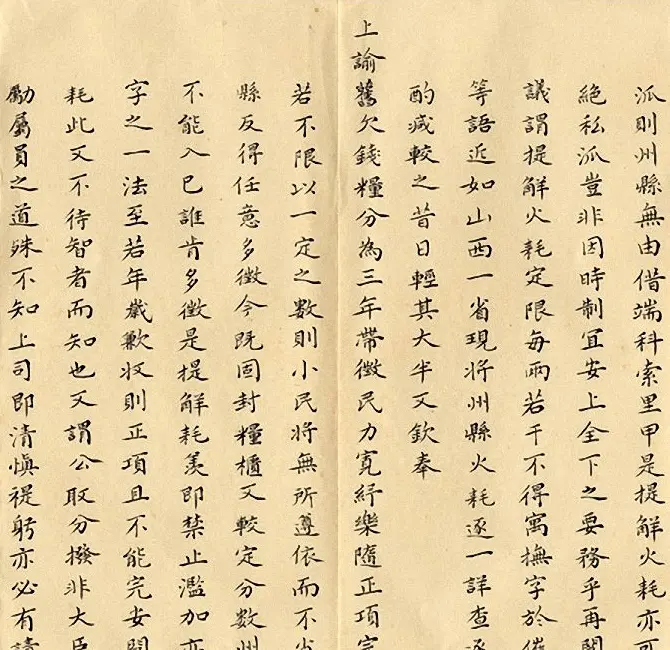 派則州縣無由借端科索里甲是提解火耗亦可
絕私派豈非因時制宜安上全下之要務乎再閱
議謂提解火耗定限每兩若干不得寓撫字於催
等語近如山西一省現將州縣火耗逐一詳查逐
酌減較之昔日輕其大半又欽奉
上諭舊欠錢糧分為三年帶徵民力寬紓樂隨正項完
若不限以一定之數則小民將無所遵依而不肖
縣反得任意多徵今既固封糧櫃又較定分數州
不能入已誰肯多徵是提解耗羨即禁止濫加亦
字之一法至若年歲歉收則正項且不能完安問
耗此又不待智者而知也又謂公取分撥非大臣
勵屬員之道殊不知上司即清慎禔躬亦必有請